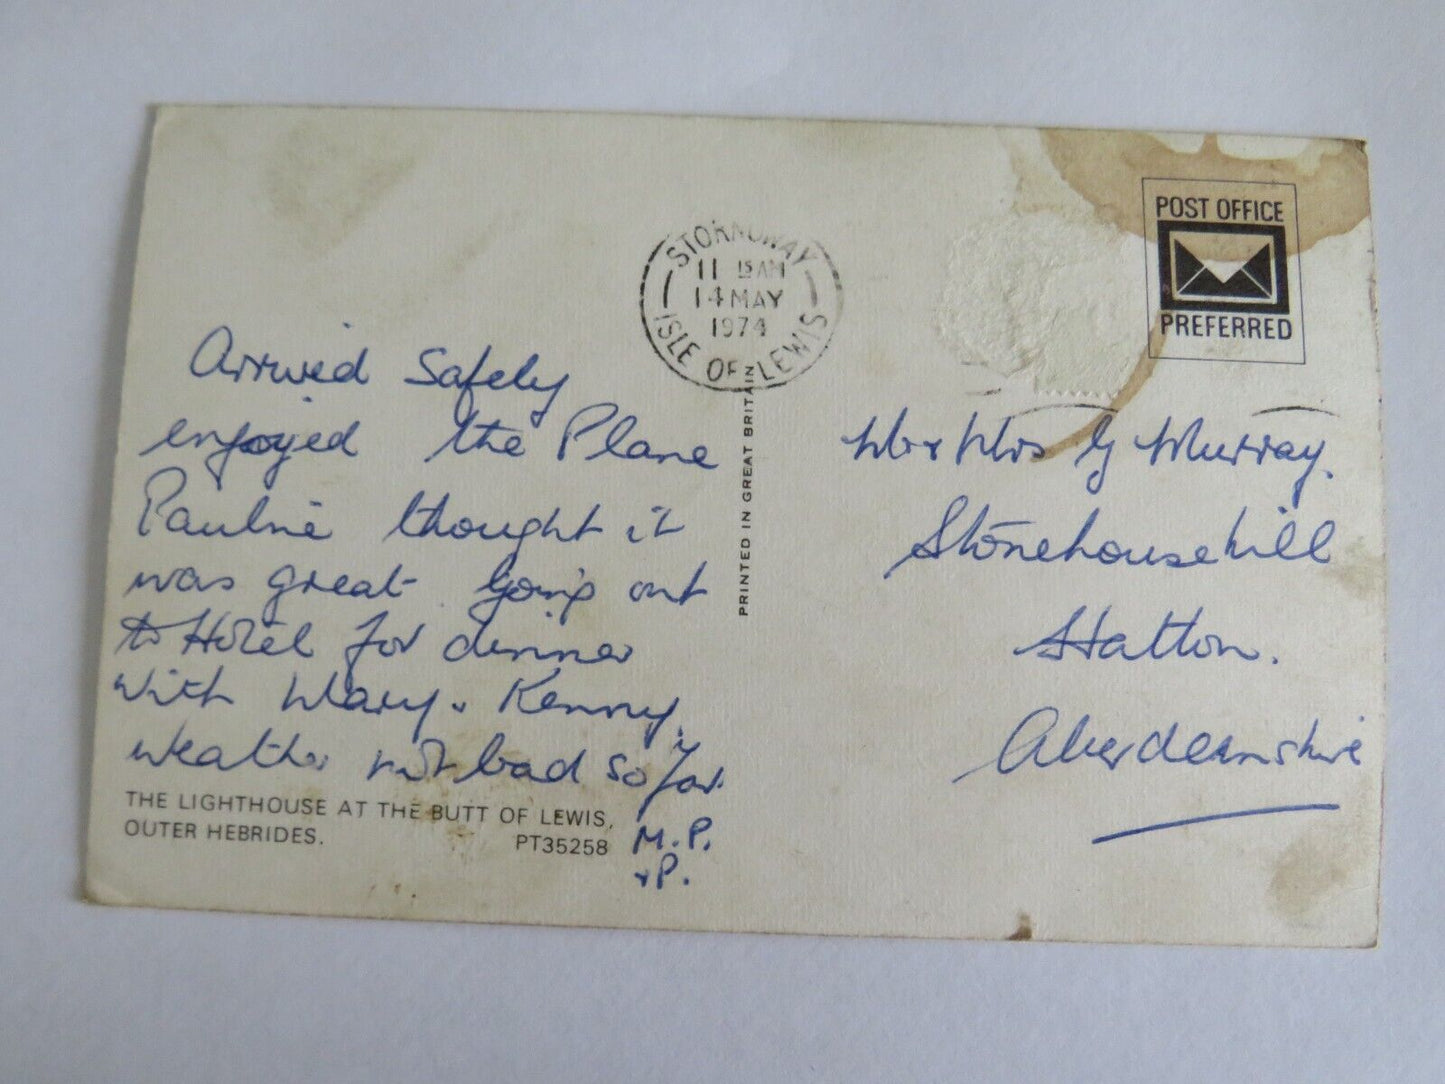 STORNOWAY
11 15 AM
14 MAY
1974
ISLE OF LEWIS
POST OFFICE
PREFERRED
Arrived Safely
enjoyed the Plane
Pauline thought it
was great. Going out
to Hotel for dinner
with Mary + Kenny.
weather not bad so far.
M.P.
+P.
THE LIGHTHOUSE AT THE BUTT OF LEWIS,
OUTER HEBRIDES. PT35258
PRINTED IN GREAT BRITAIN
Mr + Mrs G Murray.
Stonehousehill
Hatton.
Aberdeenshire